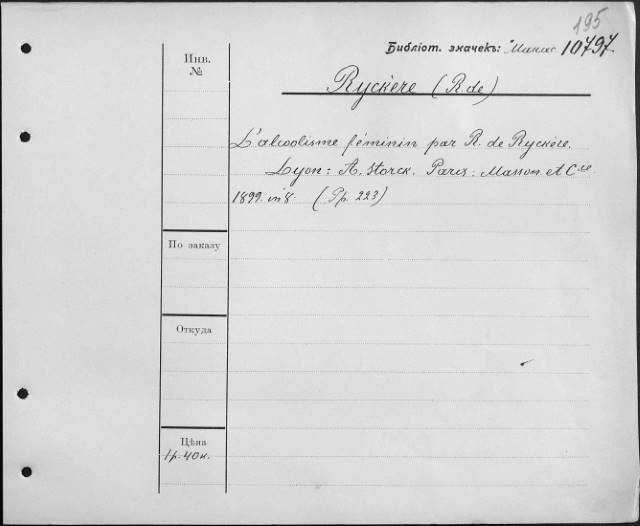 195
Библіот. значекъ: 10797
Инв.
№
Ryckère (R. de)
L'alcoolisme féminin par R. de Ryckère.
Lyon: A. Storck. Paris: Masson et Cie
1899. in 8. (Pp. 223)
По заказу
Откуда
Цѣна
1 р. 40 к.